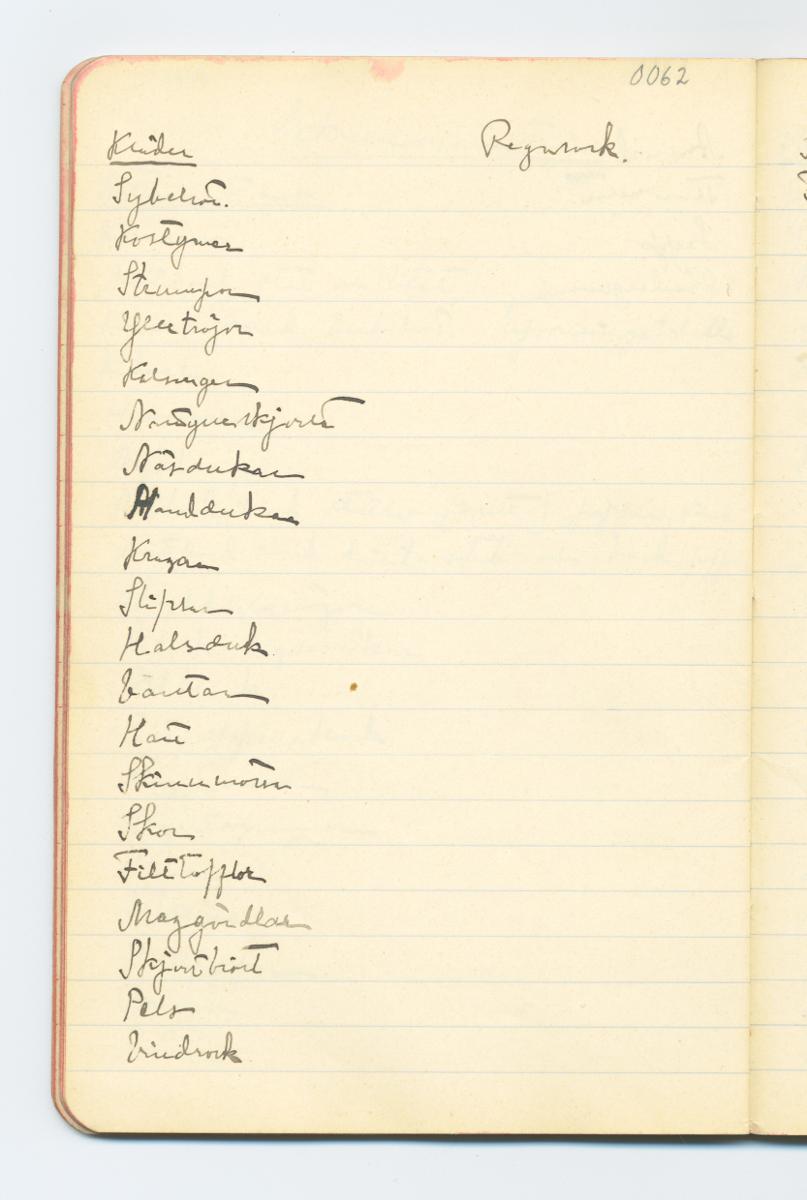 0062
Kläder
Regnrock.
Sybehör.
Kostymer
Strumpor
Ylletröjor
Kalsonger
Nattygsskjorta
Näsdukar
Handdukar
Kragar
Slipsar
Halsduk
Vantar
Hatt
Skinnmössa
Skor
Filttofflor
Maggördlar
Skjortbröst
Pels
Vindrock